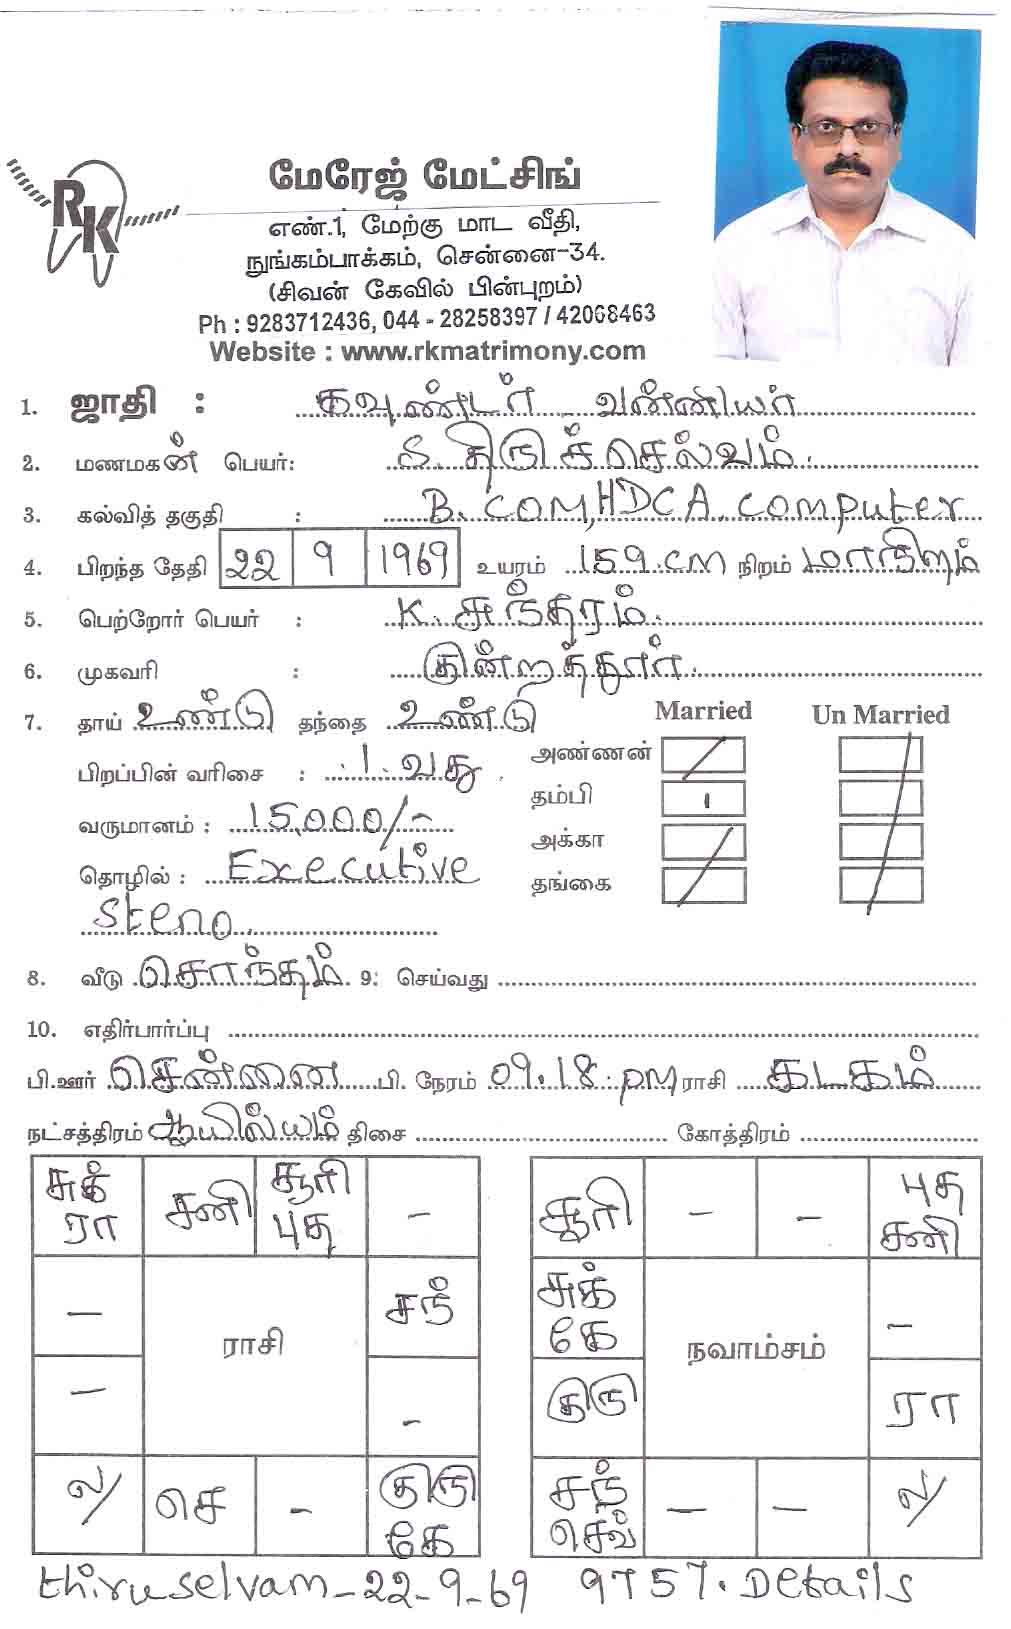 RK
மேரேஜ் மேட்சிங்
எண்.1, மேற்கு மாட வீதி,
நுங்கம்பாக்கம், சென்னை-34.
(சிவன் கேவில் பின்புறம்)
Ph : 9283712436, 044 - 28258397 / 42068463
Website : www.rkmatrimony.com
1. ஜாதி : கவுண்டர் - வன்னியர்
2. மணமகன் பெயர்: S. திருச்செல்வம்.
3. கல்வித் தகுதி : B. COM, HDCA. Computer
4. பிறந்த தேதி 22 9 1969 உயரம் 159 cm நிறம் மாநிறம்
5. பெற்றோர் பெயர் : K. சுந்தரம்.
6. முகவரி : குன்றத்தூர்.
7. தாய் உண்டு தந்தை உண்டு Married Un Married
பிறப்பின் வரிசை : 1 வது அண்ணன்
தம்பி 1
வருமானம் : 15,000/- அக்கா
தொழில் : Executive தங்கை
Steno
8. வீடு சொந்தம் 9: செய்வது
10. எதிர்பார்ப்பு
பி.ஊர் சென்னை பி. நேரம் 09.18 pm ராசி கடகம்
நட்சத்திரம் ஆயில்யம் திசை கோத்திரம்
சுக் ரா சனி சூரி புத - சூரி - - புத சனி
- சந் சுக் கே -
ராசி நவாம்சம்
- - குரு ரா
ல/ செ - குரு கே சந் செவ் - - ல/
thiruselvam - 22-9-69 9757. Details